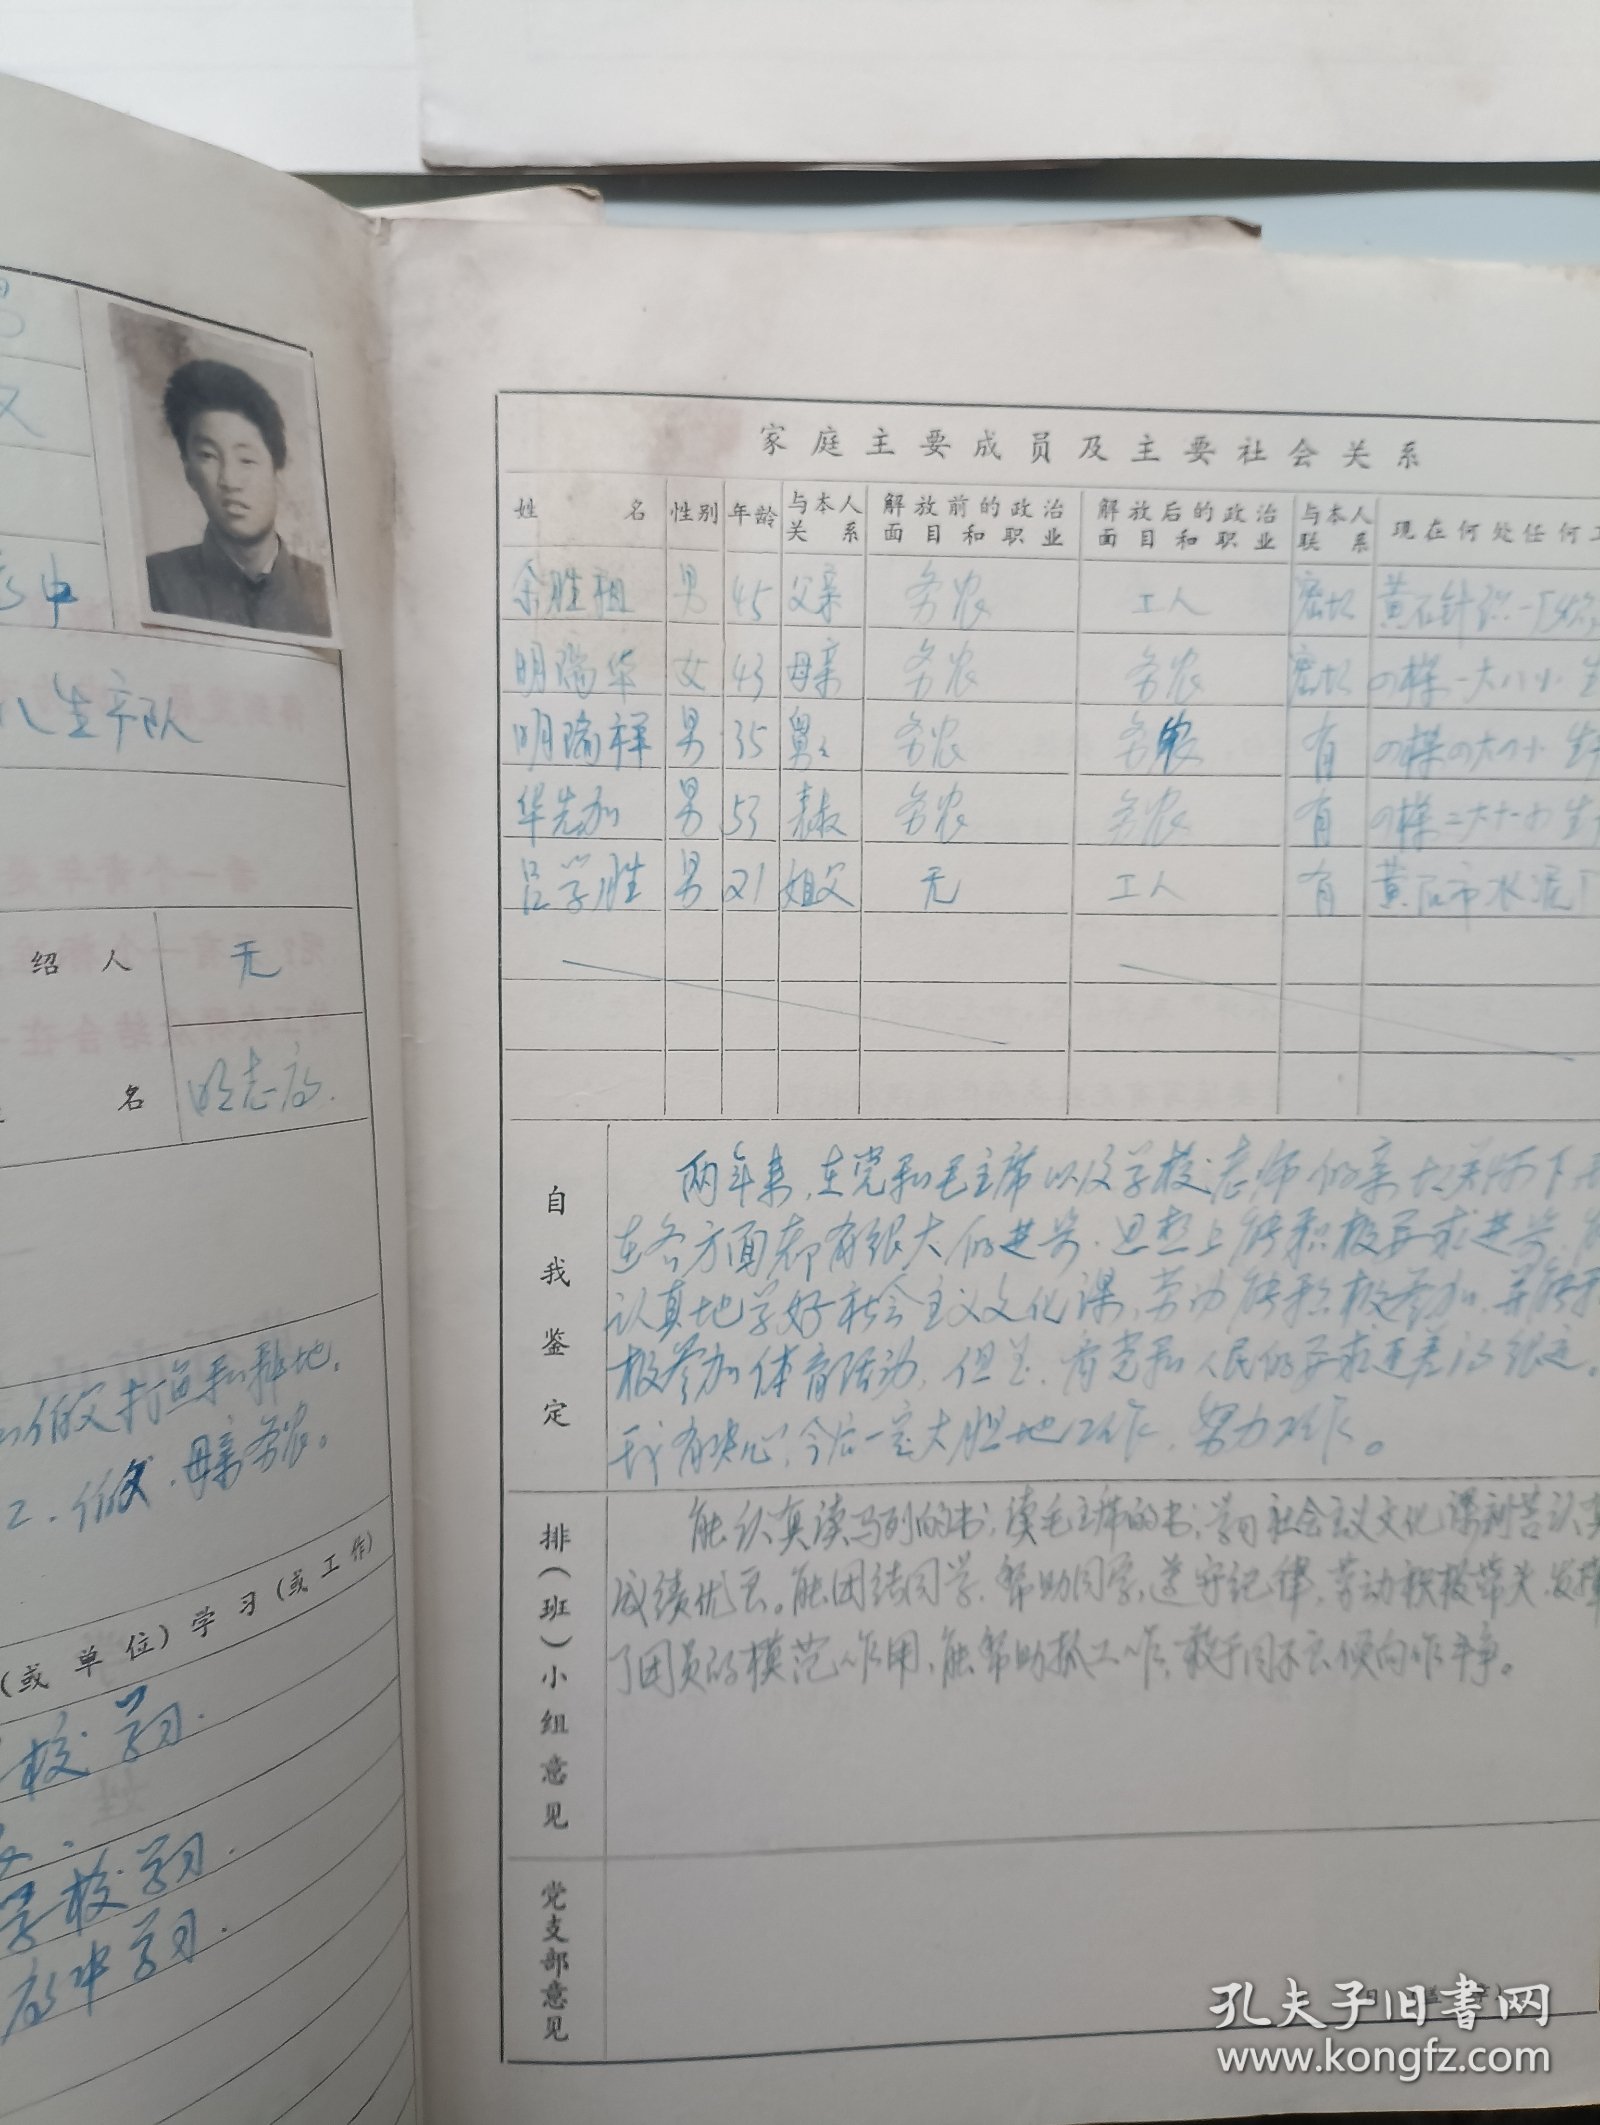 男
汉
高中
八生产队
绍人 无
名 明志高.
伯父打鱼和耕地.
2.伯父.母亲务农。
(或单位)学习(或工作)
校学习.
学校学习.
高中学习.
家庭主要成员及主要社会关系
姓名 性别 年龄 与本人关系 解放前的政治面目和职业 解放后的政治面目和职业 与本人联系 现在何处任何工
余胜祖 男 45 父亲 务农 工人 密切 黄石针织一厂
明瑞华 女 43 母亲 务农 务农 密切 四棵一大八小 生
明瑞祥 男 35 舅舅 务农 务农 有 四棵四大四小 生
华先加 男 53 表叔 务农 务农 有 四棵二大十一小 生
吕学胜 男 21 姐父 无 工人 有 黄石市水泥厂
自我鉴定
两年来,在党和毛主席以及学校老师的亲切关怀下
在各方面都有很大的进步.思想上能积极要求进步,
认真地学好社会主义文化课,劳动能积极参加,并能积
极参加体育活动,但是,离党和人民的要求还差的很远。
我有决心,今后一定大胆地工作,努力工作。
排(班)小组意见
能认真读马列的书,读毛主席的书,学习社会主义文化课刻苦认真
成绩优良。能团结同学,帮助同学,遵守纪律,劳动积极带头,发挥
了团员的模范作用,能帮助抓工作,敢于同不良倾向作斗争。
党支部意见
孔夫子旧书网
www.kongfz.com